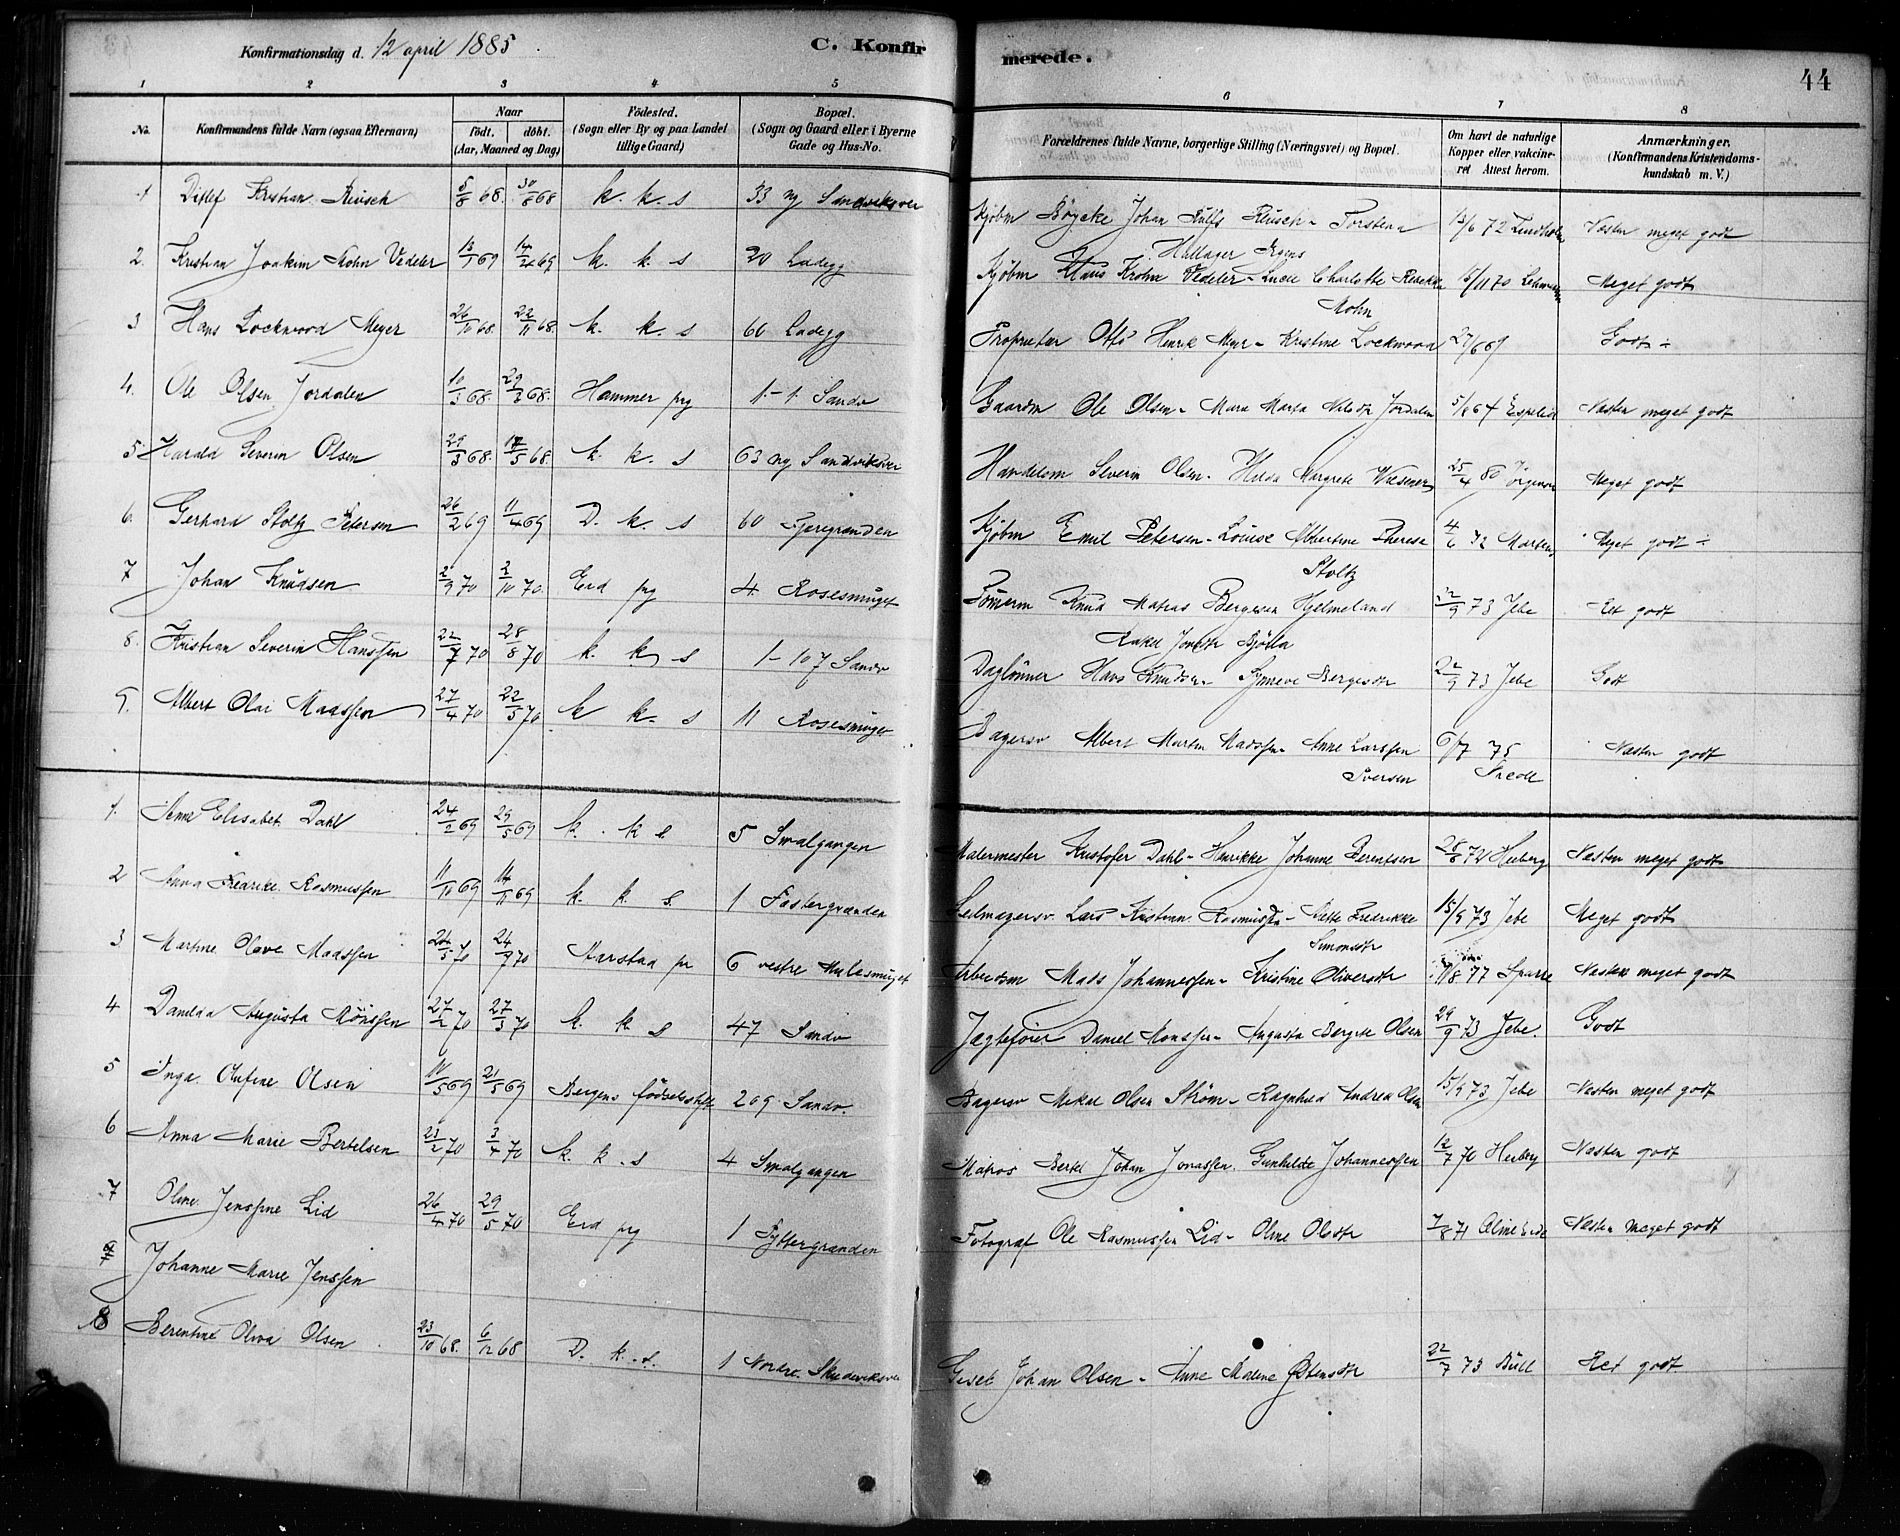 Konfirmationsdag d. 12 april 1885
C. Konfirmerede.
44
1 2 3 4 5 6 7 8
No.
Konfirmandens fulde Navn (ogsaa Efternavn)
Naar
födt. döbt.
(Aar, Maaned og Dag)
Födested.
(Sogn eller By og paa Landet tillige Gaard)
Bopæl.
(Sogn og Gaard eller i Byerne Gade og Hus-No.
Forældrenes fulde Navne, borgerlige Stilling (Næringsvei) og Bopæl.
Om havt de naturlige Kopper eller vakcineret Attest herom.
Anmærkninger.
(Konfirmandens Kristendomskundskab m. V.)
1 Ditlef Kristian Reusch 5/8 68. 30/8 68 k. k. s 33 ny Sandviksvei Kjøbm Böycke Johan Rulfs Reusch - Torstena Hallager Irgens 13/6 72 Lindholm Næsten meget godt
2. Kristian Joakim Mohn Vedeler 13/1 69 14/2 69 k. k. s 20 Ladegg Kjøbm Claus Krohn Vedeler - Lucie Charlotte Rebekka Mohn 15/11 70 Lehmann Meget godt
3 Hans Lockwood Meyer 26/10 68. 22/11 68. k. k. s 60 Ladegg Proprietær Otto Henrik Meyer - Kristine Lockwood 27/6 69 Godt -
4. Ole Olsen Jordalen 10/3 68. 29/3 68. Hammer prg 1 - 1 Sandv Gaardm Ole Olsen - Mara Marta Nilsdtr Jordalen 5/8 64 Espelid Næsten meget godt
5 Harald Severin Olsen 29/3 68. 17/5 68. k. k. s 63 ny Sandviksvei Handelsm Severin Olsen - Hilda Margrete Wiesener 25/4 80 Jörgensen Meget godt
6. Gerhard Stoltz Petersen 26/2 69 11/4 69 D. k. s 60 Kjøbm Emil Petersen - Louise Albertine Therese Stoltz 4/6 72 Martens Meget godt -
7 Johan Knudsen 2/9 70 2/10 70. Eid prg 4 Rosesmuget Tömerm Knud Matias Bergesen Hjelmeland Rakel Jonsdtr Bjötla 22/9 73 Jebe Ret godt
8. Kristian Severin Hanssen 22/7 70 28/8 70 k. k. s 1 - 107 Sandv Daglönner Hans Knudsen - Synneve Bergesdtr 22/9 73 Jebe Godt
9. Albert Olai Madssen 27/4 70 22/5 70 k k. s 11 Rosesmuget Bagersv Albert Martin Madssen - Anne Larssen Iversen 6/7 75 Næsten godt
1. Anne Elisabet Dahl 24/2 69 29/5 69 k. k s 5 Smalgangen Malermester Kristofer Dahl - Henrikke Johanne Berentsen 28/8 72 Heiberg Næsten meget godt
2 Anna Fredrike Rasmussen 11/10 69 14/11 69 k. k. s. 1 Fostergranden Seilmagersv Lars Kristian Rasmussen - Mette Fredrikke Simonsdtr 15/9 73 Jebe Meget godt
3 Martine Olave Madssen 24/5 70 24/9 70 Aarstad pr 6 vestre Mulesmuget Arbeidsm Mads Johannessen - Kristine Oliversdtr 11/8 77 Sparre Næsten meget godt
4 Danilda Augusta Mönssen 27/2 70 27/3 70 k. k s 47 Sandv Jægtefører Daniel Monssen - Augusta Bergite Olsen 29/9 73 Jebe. Godt
5 Inga Olufine Olsen 11/5 69 21/5 69 Bergens födselsstift 209 Sandv. Bagersv Mikal Olsen Ström - Ragnhild Andrea Olsen 15/9 73 Jebe Næsten meget godt
6 Anna Marie Bertelsen 23/2 70 3/4 70 k. k. s 4 Smalgangen Matros Bertel Johan Jonassen. Gunhilde Johannessen 12/7 70 Heiberg Næsten godt
7 Oline Jenssine Lid 26/4 70 29/5 70 Eid prg 1 Fyttergranden Fotograf Ole Rasmussen Lid - Oline Olsdtr 7/8 71 Næsten meget godt
Johanne Marie Jenssen
8 Berentine Oliva Olsen 23/10 68. 6/12 68 D. k. s. 1 Nordre. Skudeviksvei Gisek Johan Olsen - Anne Malene Østensdtr 22/7 73 Bull Ret godt